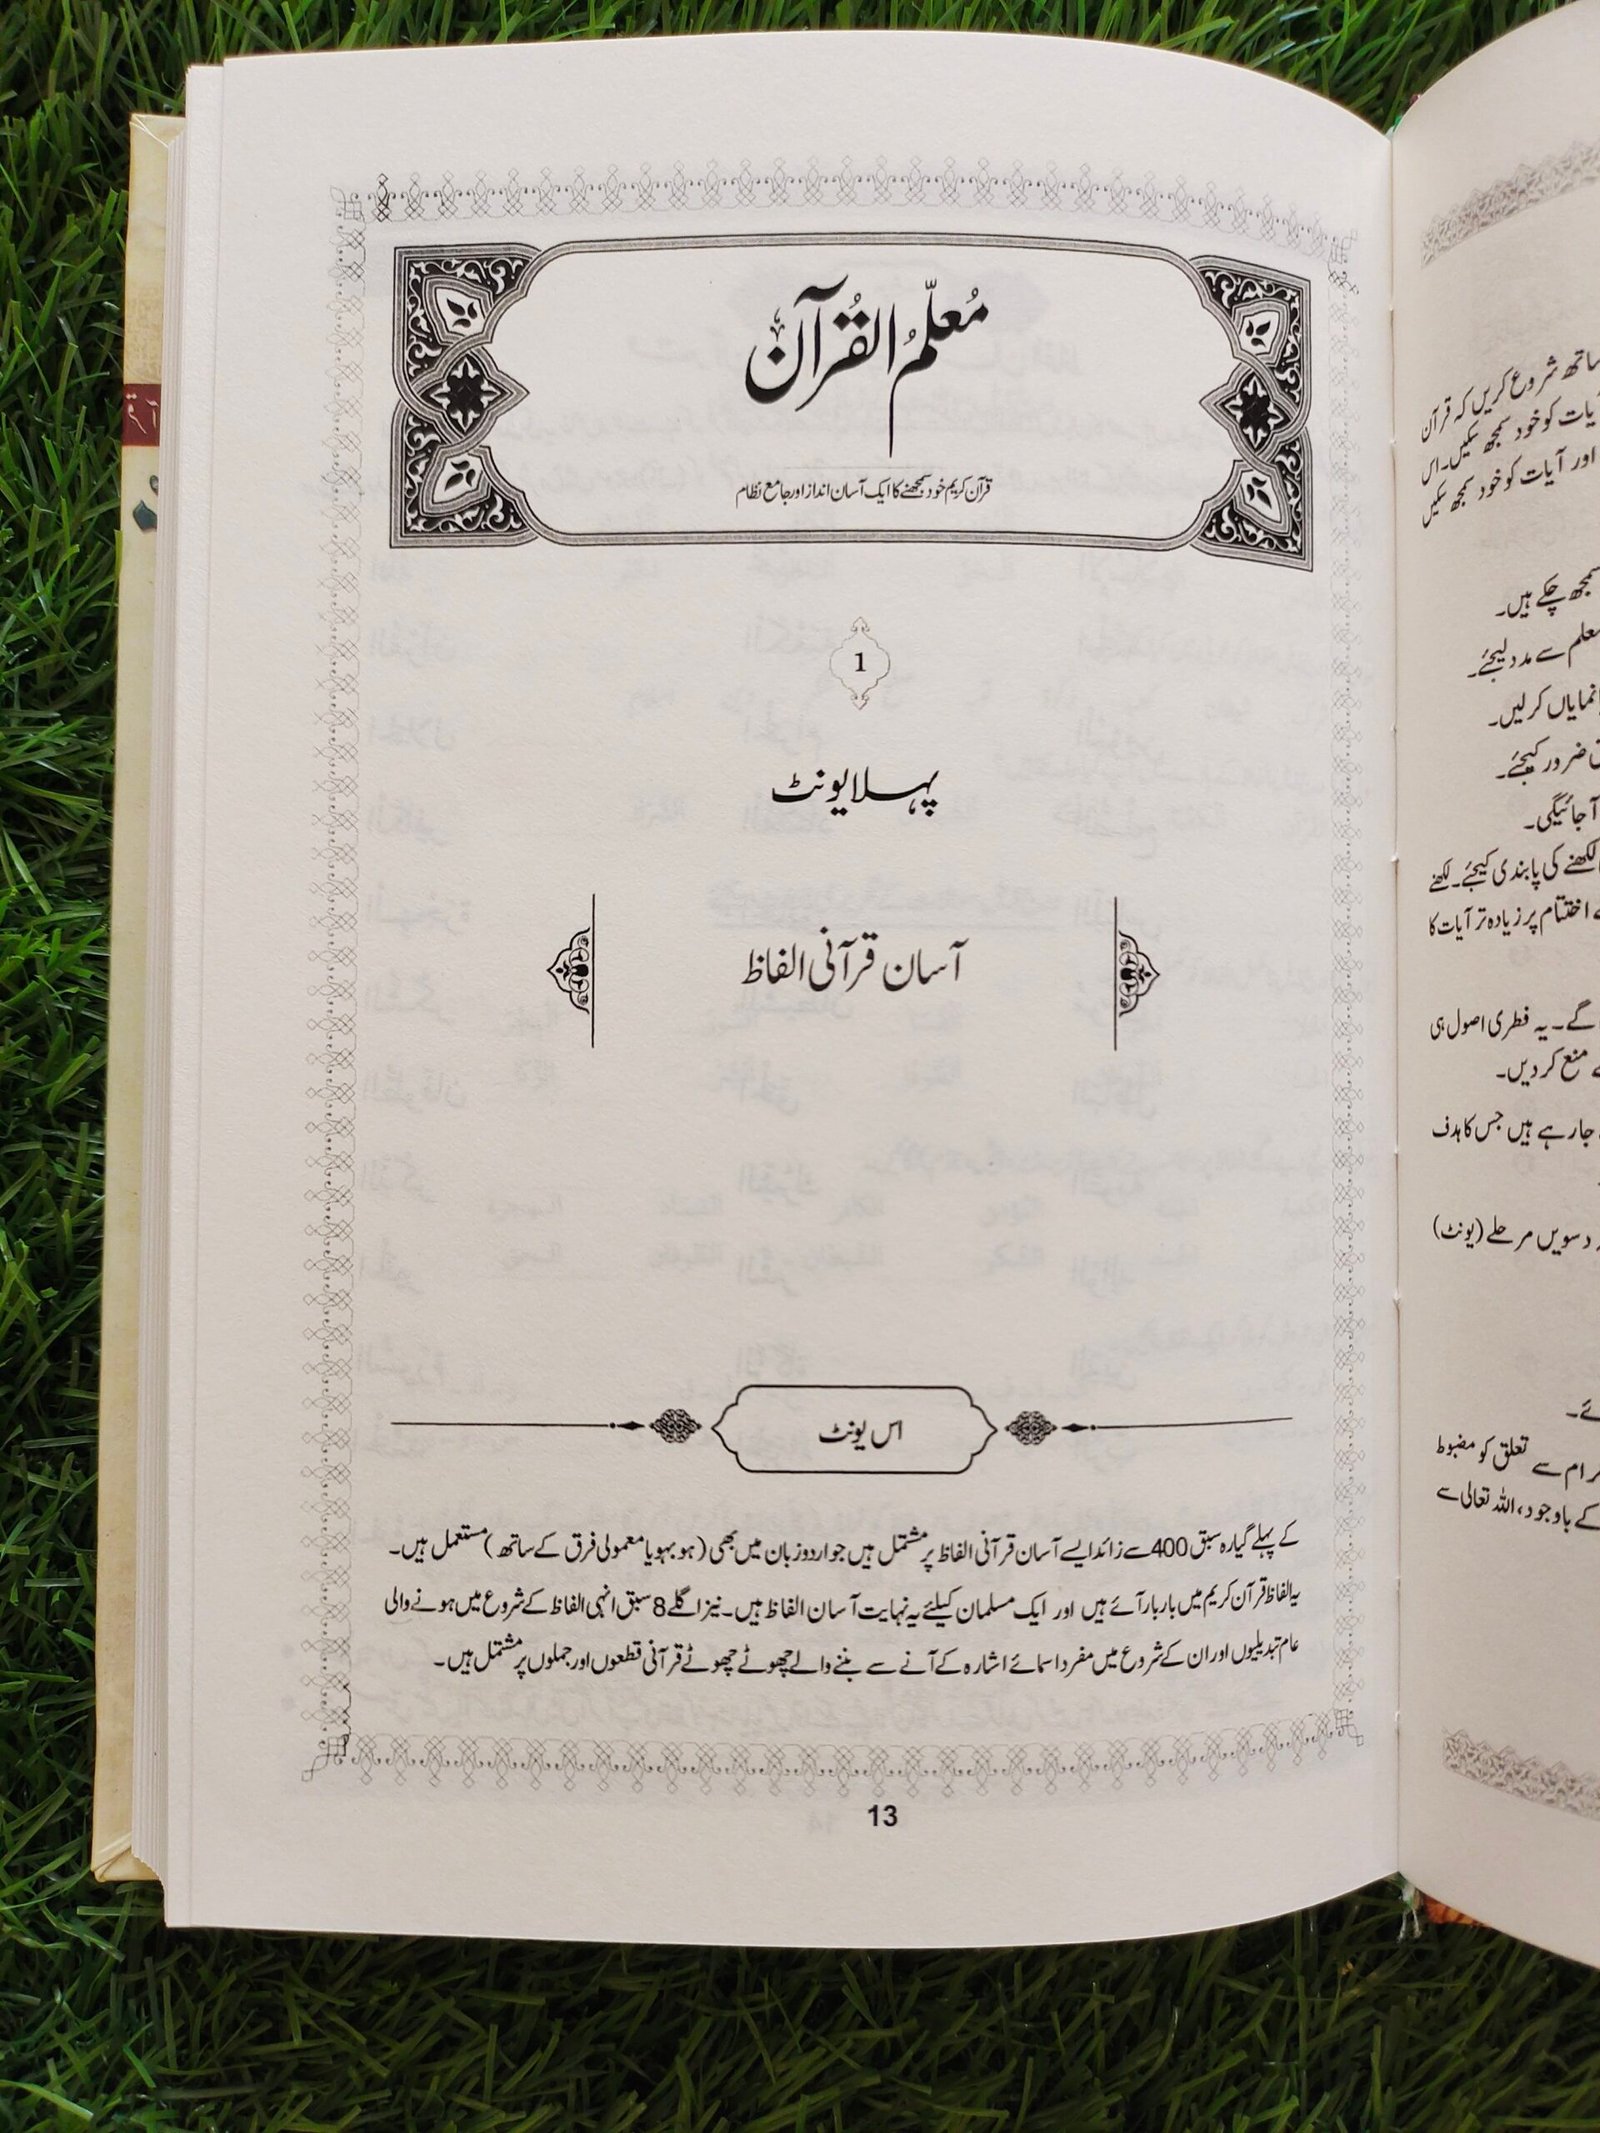 مُعلّمُ القُرآن
قرآن کریم خود سمجھنے کا ایک آسان انداز اور جامع نظام
1
پہلا یونٹ
آسان قرآنی الفاظ
اس یونٹ
کے پہلے گیارہ سبق 400 سے زائد ایسے آسان قرآنی الفاظ پر مشتمل ہیں جو اردو زبان میں بھی (ہو بہو یا معمولی فرق کے ساتھ) مستعمل ہیں۔
یہ الفاظ قرآن کریم میں بار بار آئے ہیں اور ایک مسلمان کیلئے یہ نہایت آسان الفاظ ہیں۔ نیز اگلے 8 سبق انہی الفاظ کے شروع میں ہونے والی
عام تبدیلیوں اور ان کے شروع میں مفرد اسمائے اشارہ کے آنے سے بننے والے چھوٹے چھوٹے قرآنی قطعوں اور جملوں پر مشتمل ہیں۔
13
ساتھ شروع کریں کہ قرآن
آیات کو خود سمجھ سکیں۔ اس
اور آیات کو خود سمجھ سکیں
سمجھ چکے ہیں۔
معلم سے مدد لیجئے۔
نمایاں کرلیں۔
ضرور کیجئے۔
آجائیگی۔
لکھنے کی پابندی کیجئے۔ لکھنے
اختتام پر زیادہ تر آیات کا
گے۔ یہ فطری اصول ہی
منع کردیں۔
جارہے ہیں جس کا ہدف
دسویں مرحلے (یونٹ)
سے تعلق کو مضبوط
کے باوجود، اللہ تعالی سے